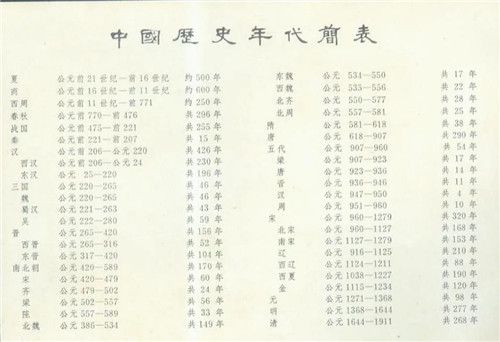 中國歷史年代簡表
夏 公元前21世纪—前16世纪 约500年
商 公元前16世纪—前11世纪 约600年
西周 公元前11世纪—前771 约250年
春秋 公元前770—前476 共296年
战国 公元前475—前221 共255年
秦 公元前221—前207 共15年
汉 公元前206—公元220 共426年
西汉 公元前206—公元24 共230年
东汉 公元 25—220 共196年
三国 公元220—265 共46年
魏 公元220—265 共46年
蜀汉 公元221—263 共43年
吴 公元222—280 共59年
晋 公元265—420 共156年
西晋 公元265—316 共52年
东晋 公元317—420 共104年
南北朝 公元420—589 共170年
宋 公元420—479 共60年
齐 公元479—502 共24年
梁 公元502—557 共56年
陈 公元557—589 共33年
北魏 公元386—534 共149年
东魏 公元 534—550 共17年
西魏 公元 535—556 共22年
北齐 公元 550—577 共28年
北周 公元 557—581 共25年
隋 公元 581—618 共38年
唐 公元 618—907 共290年
五代 公元 907—960 共54年
梁 公元 907—923 共17年
唐 公元 923—936 共14年
晋 公元 936—946 共11年
汉 公元 947—950 共4年
周 公元 951—960 共10年
宋 公元 960—1279 共320年
北宋 公元 960—1127 共168年
南宋 公元1127—1279 共153年
辽 公元 916—1125 共210年
西辽 公元1124—1211 共88年
西夏 公元1038—1227 共190年
金 公元1115—1234 共120年
元 公元1271—1368 共98年
明 公元1368—1644 共277年
清 公元1644—1911 共268年